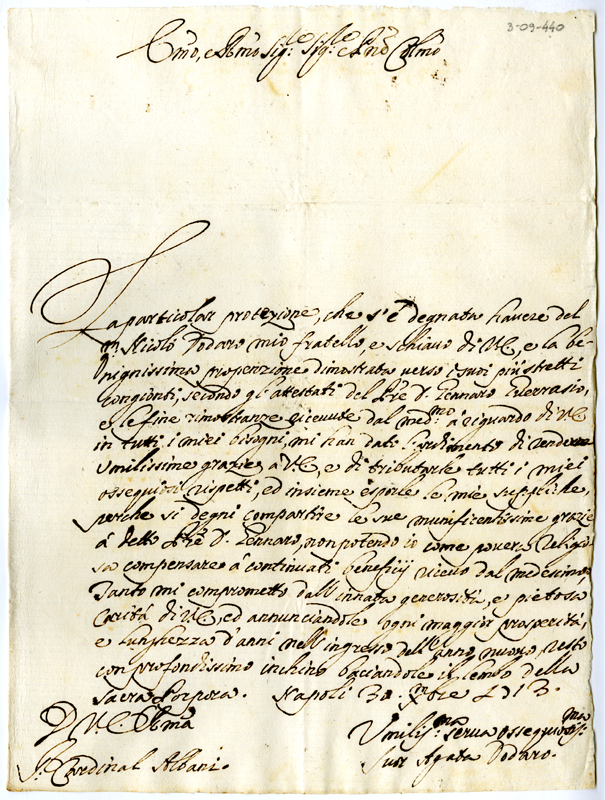 3-09-440
Emo, e Rmo Sig.re Sig.re e Prōn Colmo
La particolar protezione, che s'è degnata havere del
Nicolò Todaro mio fratello, e schiavo di V.E., e la be-
nignissima propenzione dimostrata verso i suoi più stretti
congionti, secondo gl'attestati del Pre D. Gennaro Perrasio,
e le fine rimostranze ricevute dal med.mo a riguardo di V.E.
in tutti i miei bisogni, mi han dato l'ardimento di rendere
Umilissime grazie a V.E., e di tributarle tutti i miei
ossequiosi rispetti, ed insieme esporle le mie suppliche,
perche si degni compartire le sue munificentissime grazie
à detto Pre D. Gennaro, non potendo io come povera Religio-
sa compensare à continuati beneficij ricevo dal medesimo,
Tanto mi comprometto dall'innata generosità, e pietosa
carità di V.E., ed annunciandole ogni maggior prosperità,
e lunghezza d'anni nell'ingresso dell'anno nuovo, resto
con profondissimo inchino baciandole il lembo della
Sacra Porpora. Napoli 30 Xmbre 1713.
D V. E. Rma
Sr. Cardinal Albani.
Umiliss.ma serva ossequiosiss.ma
Suor Agata Todaro.